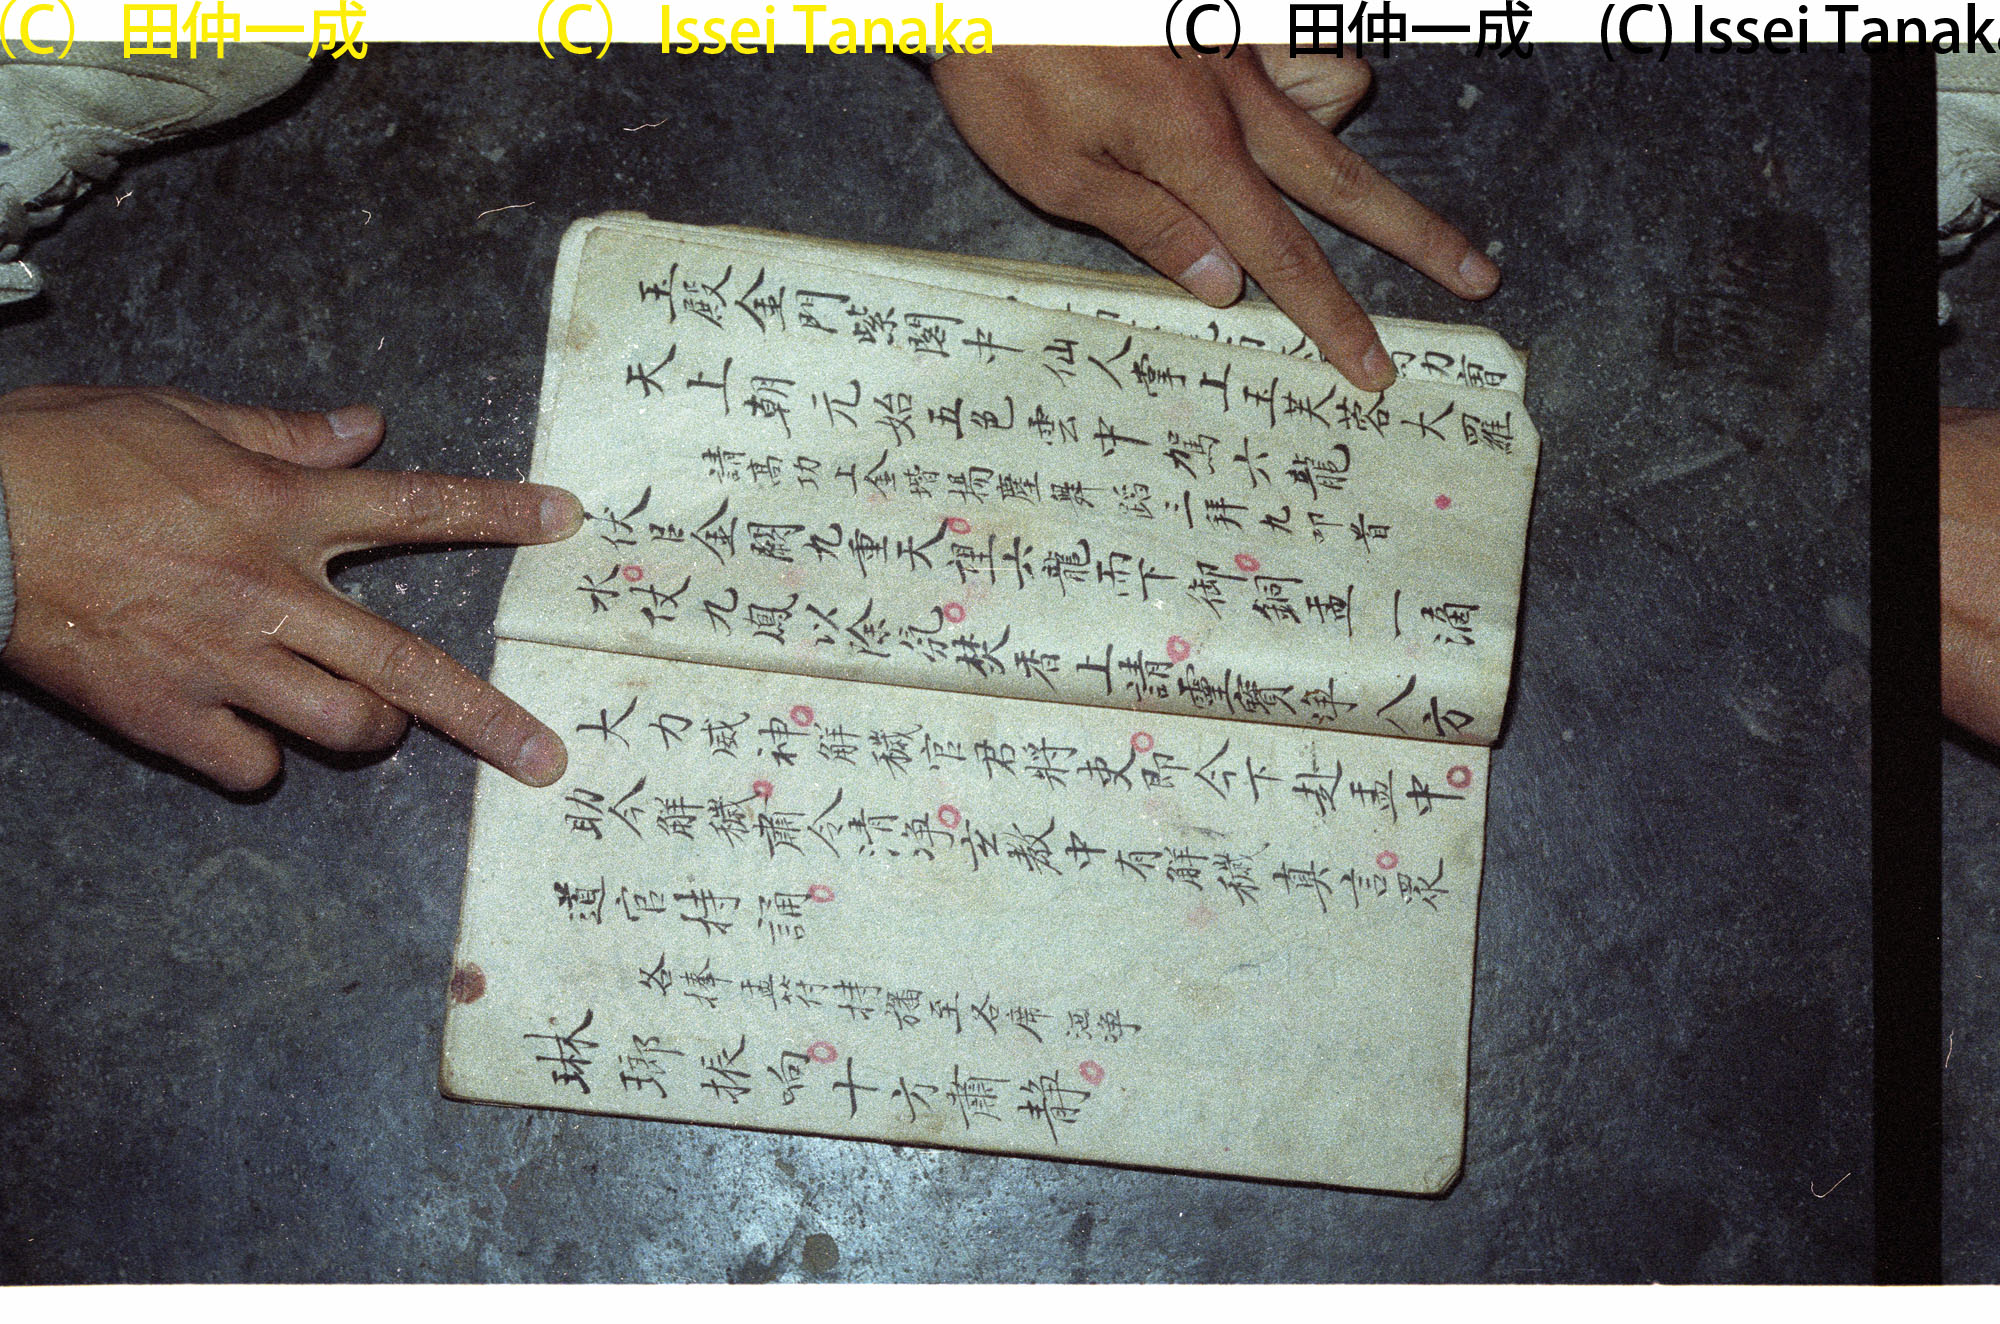 (C) 田仲一成 (C) Issei Tanaka (C) 田仲一成 (C) Issei Tanaka
玉殿金門紫閣中仙人掌上玉芙蓉大羅
天上朝元始五色雲中駕六龍
請高功上金堦揚塵舞蹈三拜九叩首
伏㠯金闕九重天裡六龍而下御銅盂一滴
水仗九鳳以除氛焚香上請靈寶淨八方
大力威神解穢官君將吏即今下赴盂中
助今解穢肅令清净玄教中有解穢真言眾
道官持誦
各捧盂符持旛至各席洒净
琳瑯振响十方肅静